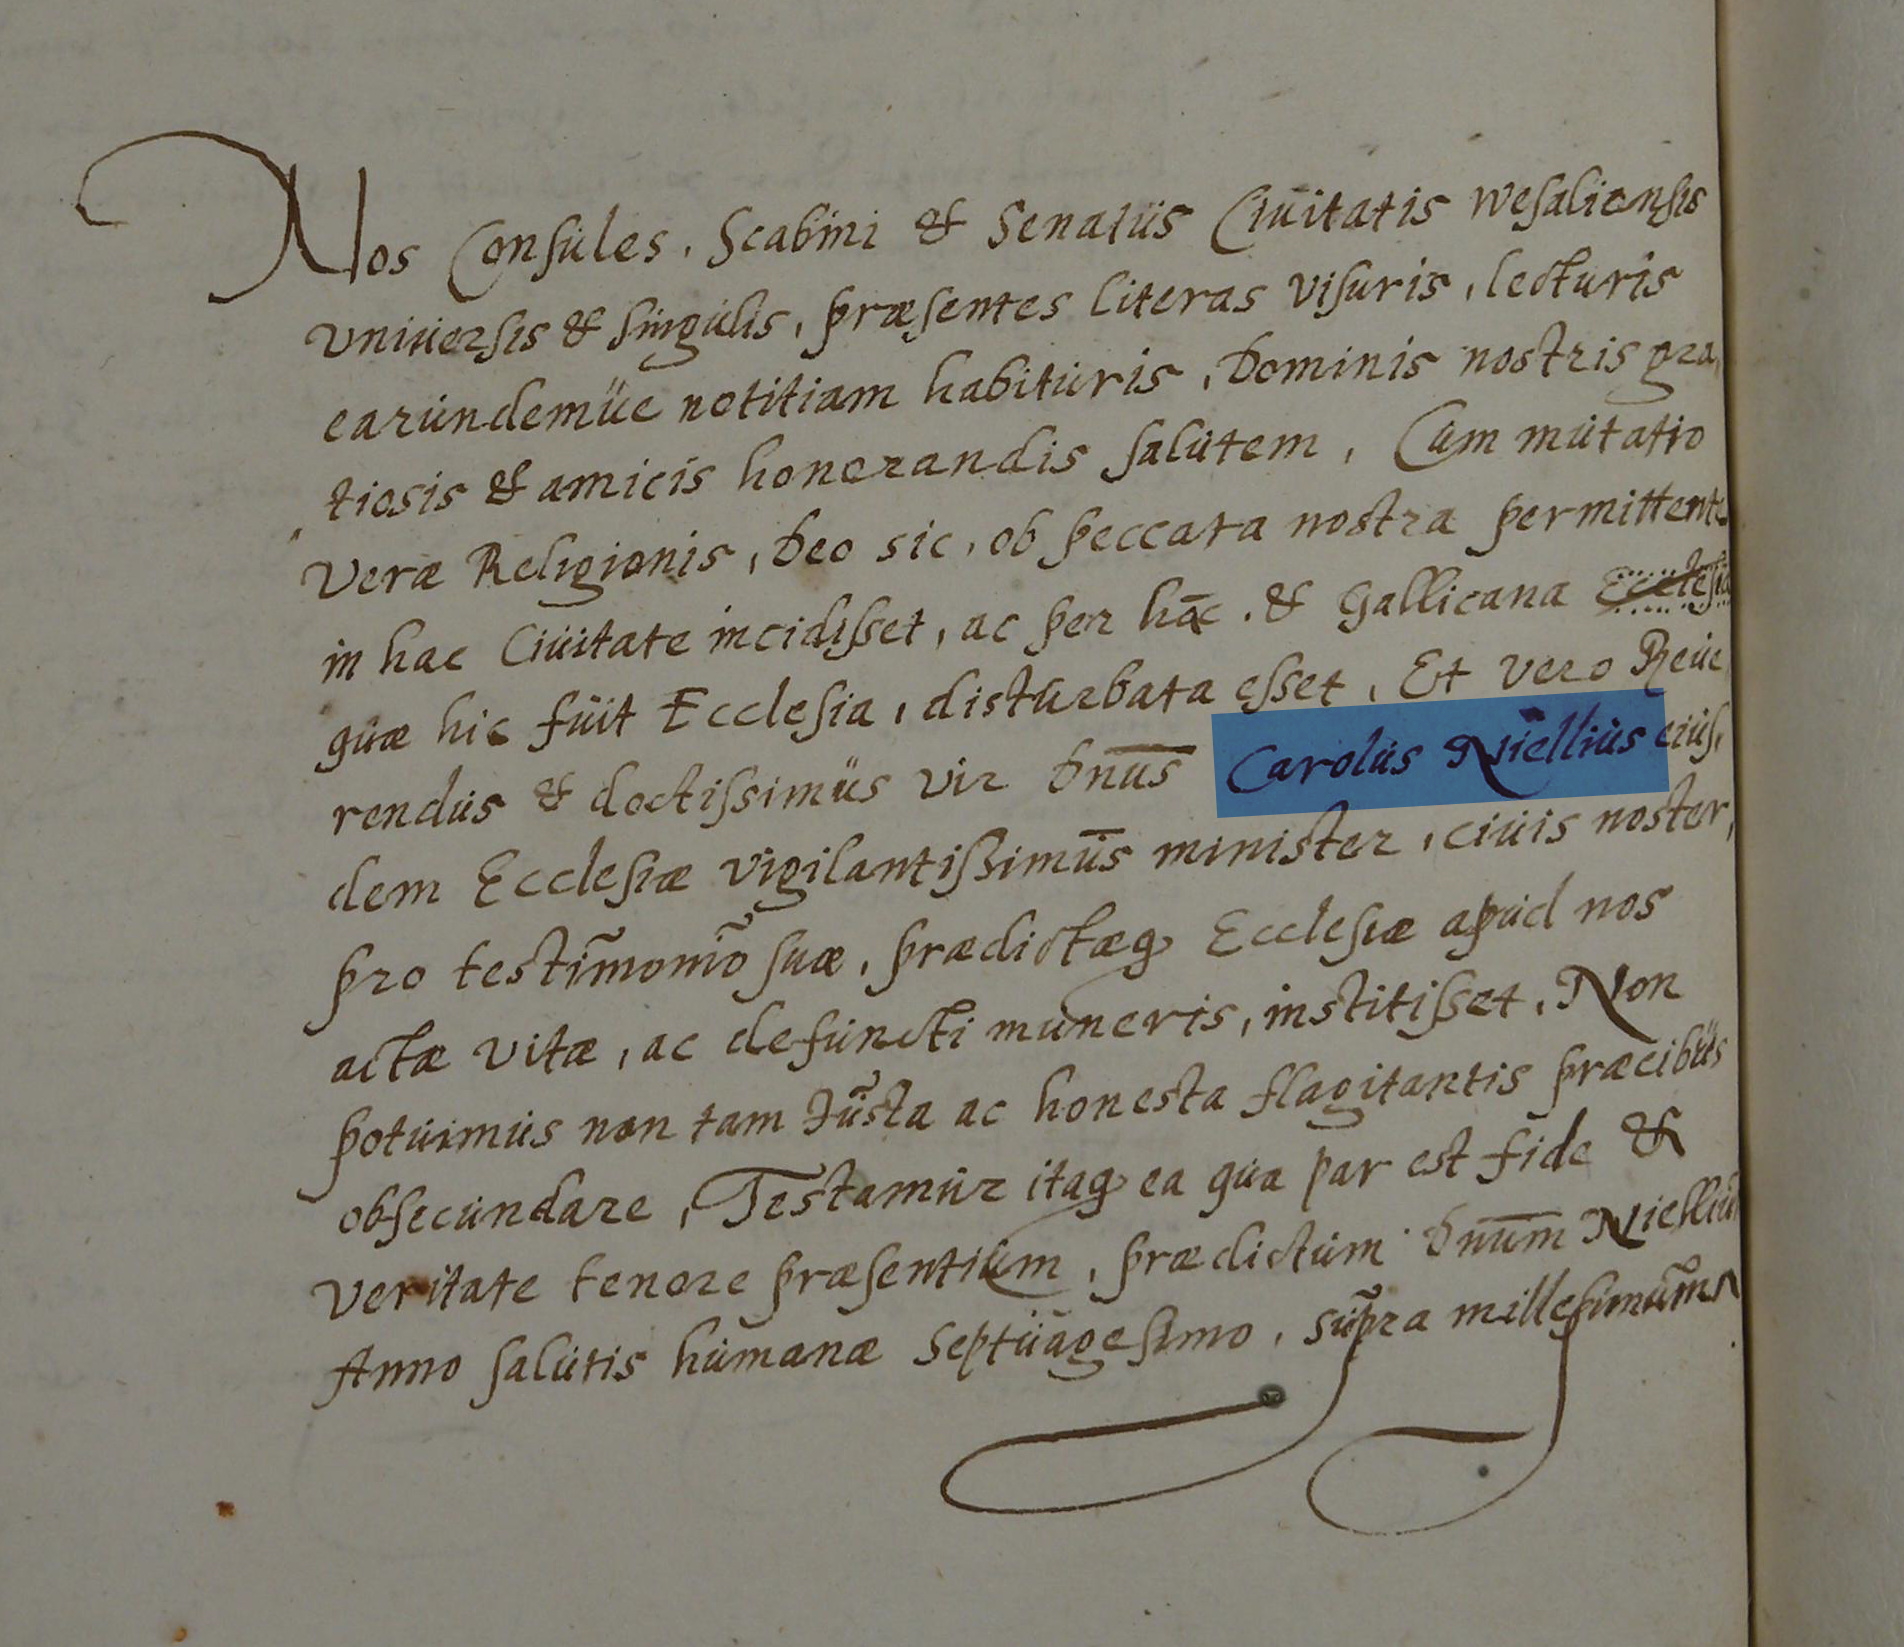 Nos Consules, Scabini & Senatus Civitatis Wesaliensis
universis & singulis, præsentes literas visuris, lecturis
earundemve notitiam habituris, Dominis nostris gra,
tiosis & amicis honorandis salutem, Cum mutatio
Veræ Religionis, Deo sic, ob peccata nostra permittente
in hac Civitate incidisset, ac per hāc, & Gallicana Ecclesia
quæ hic fuit Ecclesia, disturbata esset, Et vero Reve
rendus & doctissimus vir Dnus Carolus Niellius eius,
dem Ecclesiæ vigilantissimus minister, civis noster,
pro testimonio suæ, prædictæq Ecclesiæ apud nos
actæ vitæ, ac defuncti muneris, institisset, Non
potuimus non tam Justa ac honesta flagitantis præcibus
obsecundare, Testamur itaq ea qua par est fide &
veritate tenore præsentium, prædictum Dnum Niellium
Anno salutis humanæ septuagesimo, supra millesimum